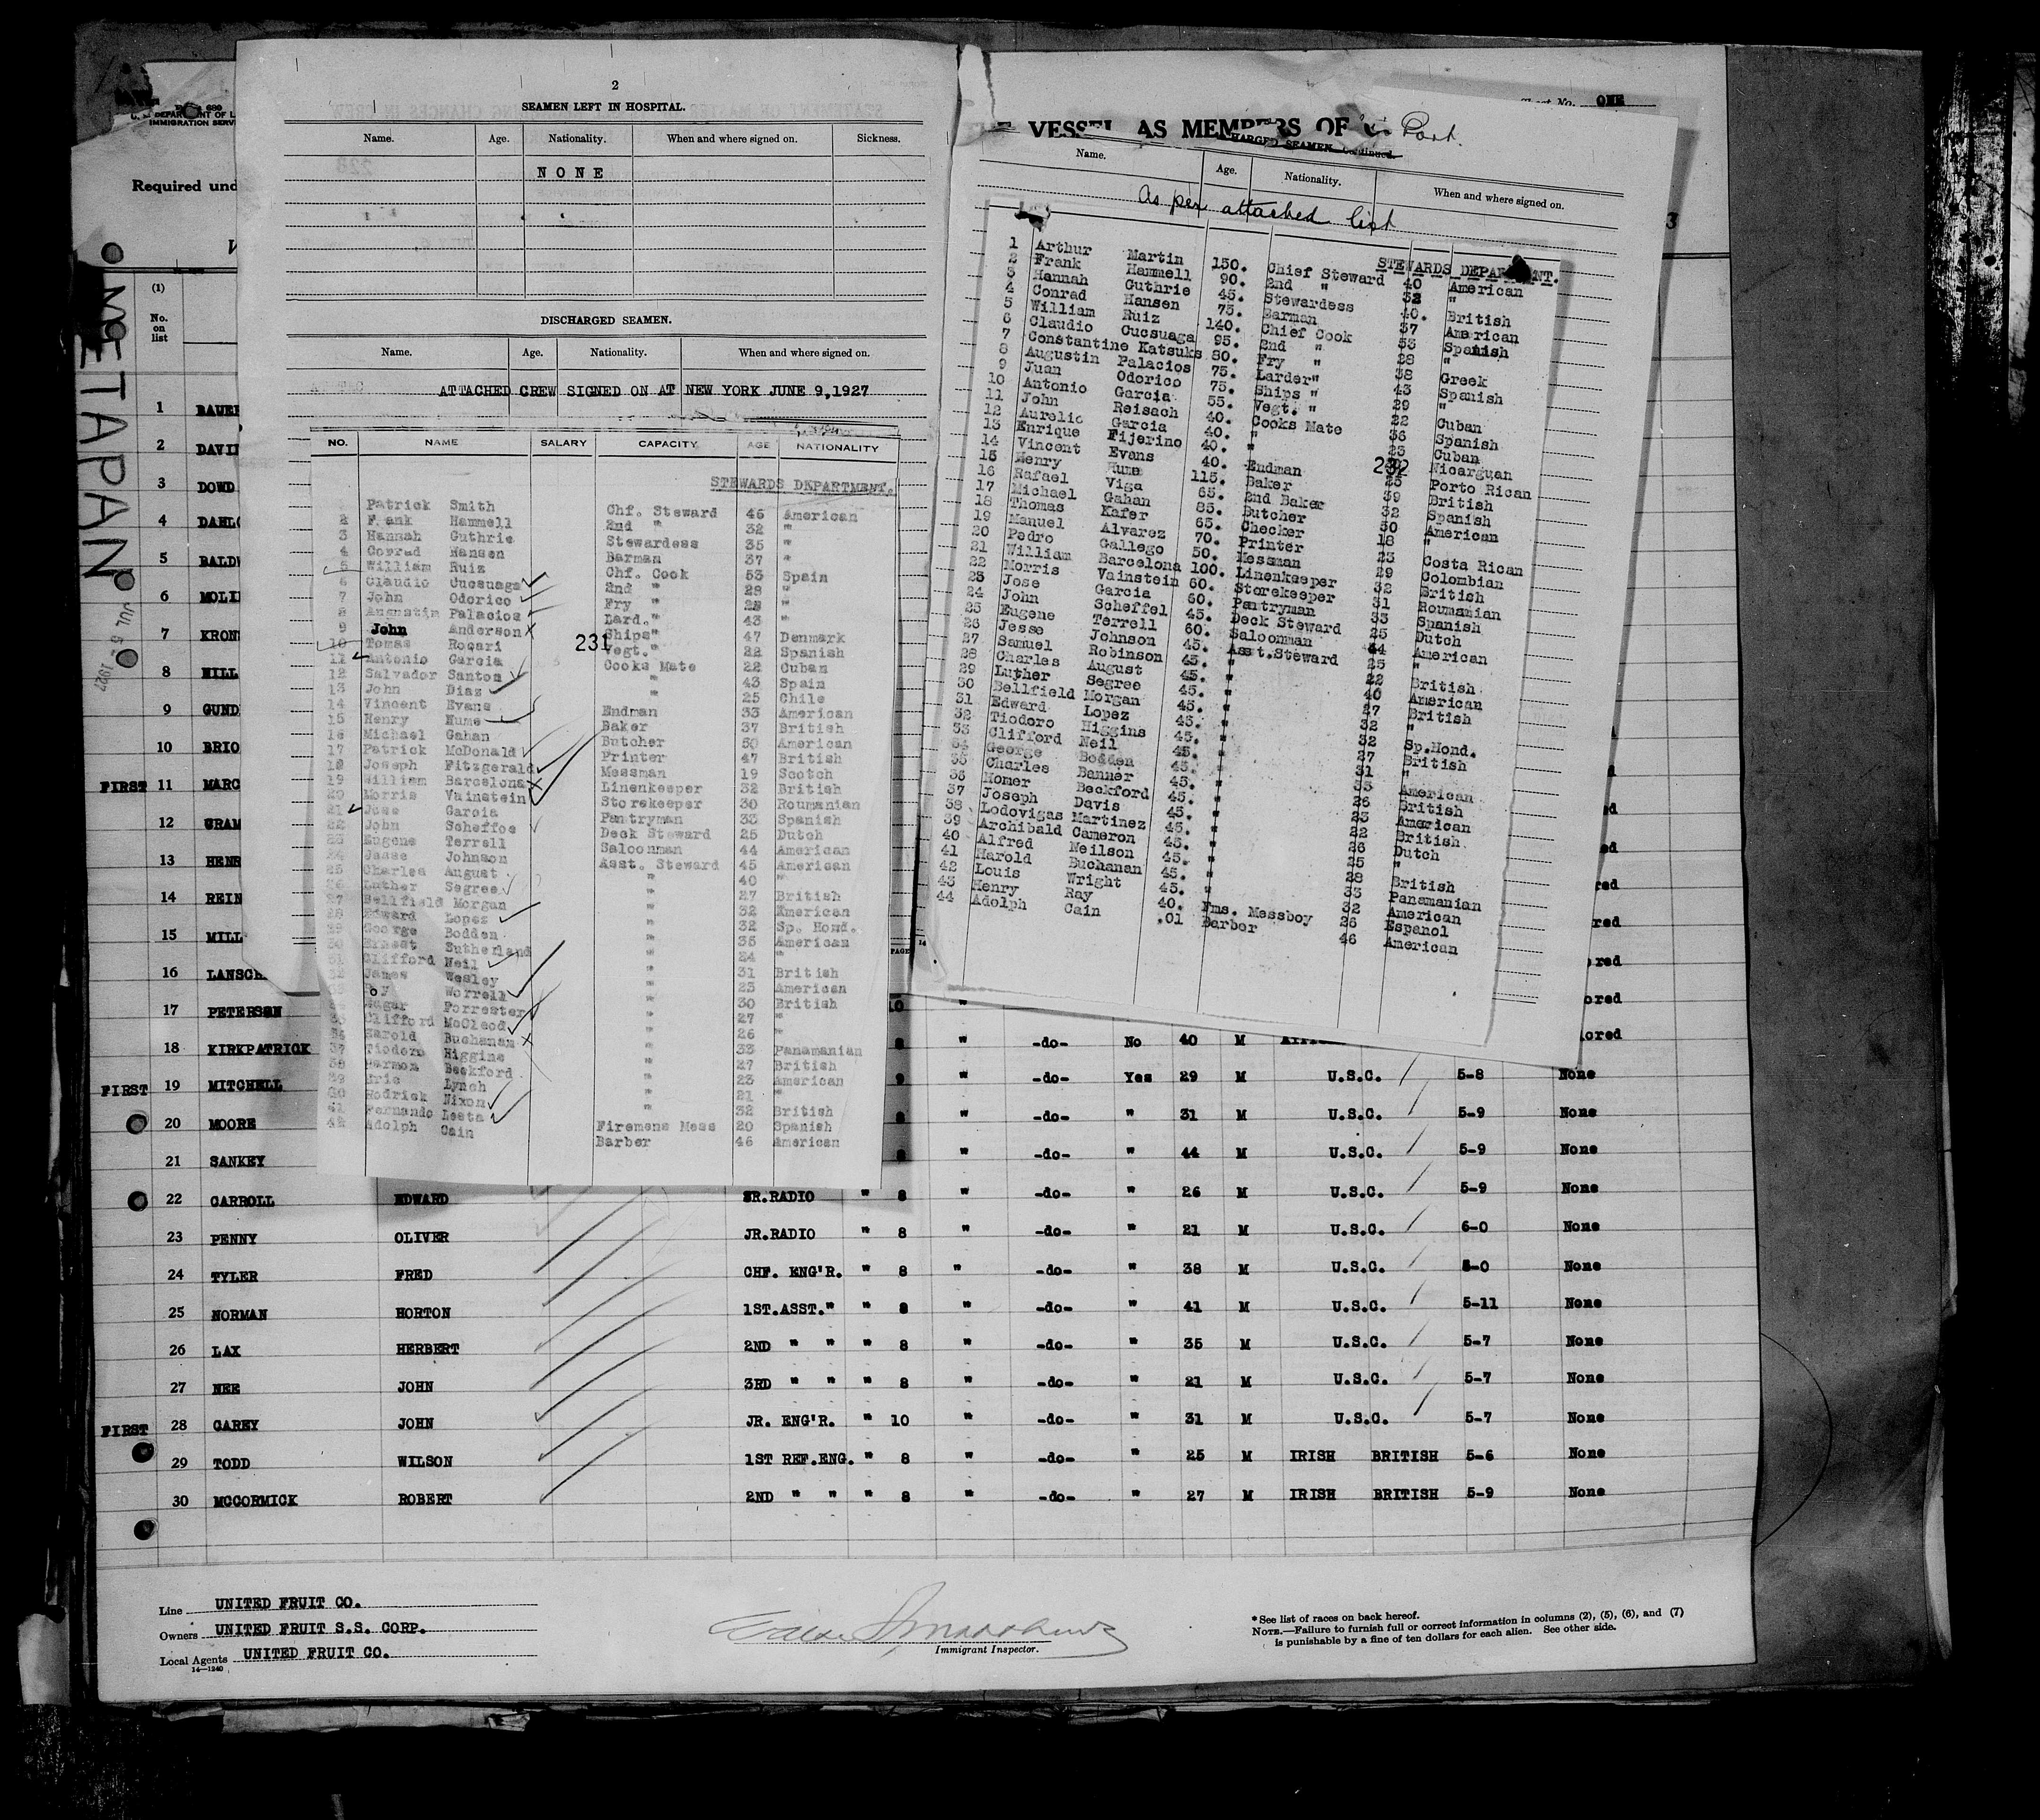 2
SEAMEN LEFT IN HOSPITAL.
Name. Age. Nationality. When and where signed on. Sickness.
NONE
DISCHARGED SEAMEN.
Name. Age. Nationality. When and where signed on.
ATTACHED CREW SIGNED ON AT NEW YORK JUNE 9,1927
NO. NAME SALARY CAPACITY AGE NATIONALITY
STEWARDS DEPARTMENT.
Patrick Smith Chf. Steward 46 American
2 Frank Hammell 2nd " 32 "
3 Hannah Guthrie Stewardess 35 "
4 Conrad Hansen Barman 37 "
5 William Ruiz Chf. Cook 53 Spain
6 Claudio Cucsuaga 2nd " 28 "
7 John Odorico Fry " 28 "
8 Augustin Palacios Lard. " 43 "
9 John Anderson Ships " 47 Denmark
10 Tomas Rogari Vegt. " 22 Spanish
11 Antonio Garcia Cooks Mate 22 Cuban
12 Salvador Santos " 43 Spain
13 John Diaz " 25 Chile
14 Vincent Evans Endman 33 American
15 Henry Hume Baker 37 British
16 Michael Gahan Butcher 50 American
17 Patrick McDonald Printer 47 British
18 Joseph Fitzgerald Messman 19 Scotch
19 William Barcelona Linenkeeper 32 British
20 Morris Vainstein Storekeeper 30 Roumanian
21 Jose Garcia Pantryman 33 Spanish
22 John Scheffos Deck Steward 25 Dutch
23 Eugene Terrell Saloonman 44 American
24 Jesse Johnson Asst. Steward 45 American
25 Charles August " 40 "
26 Luther Segree " 27 British
27 Bellfield Morgan " 32 American
28 Edward Lopez " 32 Sp. Hond.
29 George Bodden " 35 American
30 Ernest Sutherland " 24 "
31 Clifford Neil " 31 British
32 James Wesley " 23 American
Roy Worrell " 30 British
Edgar Forrester " 27 "
35 Clifford McCleod " 26 "
36 Harold Buchanan " 33 Panamanian
37 Tiodoro Higgins " 27 British
38 Harmon Beckford " 23 American
39 Eric Lynch " 21 "
40 Rodrick Nixon " 32 British
41 Fernando Leeta Firemens Mess 20 Spanish
42 Adolph Cain Barber 46 American
231
Sheet No. ONE
VESSEL AS MEMBERS OF
Port.
CHARGED SEAMEN Continued.
Name. Age. Nationality. When and where signed on.
As per attached list
STEWARDS DEPARTMENT.
1 Arthur Martin 150. Chief Steward 40 American
2 Frank Hammell 90. 2nd " 32 "
3 Hannah Guthrie 45. Stewardess 40. British
4 Conrad Hansen 75. Barman 37 American
5 William Ruiz 140. Chief Cook 53 Spanish
6 Claudio Cucsuaga 95. 2nd " 28 "
7 Constantine Katsuks 80. Fry " 38 Greek
8 Augustin Palacios 75. Larder" 43 Spanish
9 Juan Odorico 75. Ships " 29 "
10 Antonio Garcia 55. Vegt. " 22 Cuban
11 John Reisach 40. Cooks Mate 36 Spanish
12 Aurelio Garcia 40. " 23 Cuban
13 Enrique Fijerino 40. " Nicarguan
14 Vincent Evans 40. Endman Porto Rican
15 Henry Hume 115. Baker 39 British
16 Rafael Viga 65. 2nd Baker 32 Spanish
17 Michael Gahan 85. Butcher 50 American
18 Thomas Kafer 65. Checker 18 "
19 Manuel Alvarez 70. Printer 23 Costa Rican
20 Pedro Gallego 50. Messman 29 Colombian
21 William Barcelona 100. Linenkeeper 32 British
22 Morris Vainstein 60. Storekeeper 31 Roumanian
23 Jose Garcia 60. Pantryman 33 Spanish
24 John Scheffel 45. Deck Steward 25 Dutch
25 Eugene Terrell 60. Saloonman 44 American
26 Jesse Johnson 45. Asst.Steward 25 "
27 Samuel Robinson 45. " 22 British
28 Charles August 45. " 40 American
29 Luther Segree 45. " 27 British
30 Bellfield Morgan 45. " 32 "
31 Edward Lopez 45. " 32 Sp.Hond.
32 Tiodoro Higgins 45. " 27 British
33 Clifford Neil 45. " 31 "
34 George Bodden 45. " 35 American
35 Charles Banner 45. " 26 British
36 Homer Beckford 45. " 23 American
37 Joseph Davis 45. " 22 British
38 Lodovigas Martinez 45. " 26 Dutch
39 Archibald Cameron 45. " 25 "
40 Alfred Neilson 45. " 28 British
41 Harold Buchanan 45. " 33 Panamanian
42 Louis Wright 45. " 32 American
43 Henry Ray 40. Fms. Messboy 26 Espanol
44 Adolph Cain .01 Barber 46 American
232
IMMIGRATION SERV
Required und
METAPAN
JUL 5 1927
(1)
No. on list
1 BAUE
2 DAVI
3 DOWD
4 DAHL
5 BALD
6 MOLI
7 KRON
8 HILL
9 GUND
10 BRIO
FIRST 11 MARC
12 GRAM
13 HENR
14 REIN
15 MILL
16 LANSC
17 PETERSON 10 "
18 KIRKPATRICK 8 " -do- No 40 M
FIRST 19 MITCHELL 9 " -do- Yes 29 M U.S.C. 5-8 None
20 MOORE 8 " -do- " 31 M U.S.C. 5-9 None
21 SANKEY 8 " -do- " 44 M U.S.C. 5-9 None
22 CARROLL EDWARD SR.RADIO " 8 " -do- " 26 M U.S.C. 5-9 None
23 PENNY OLIVER JR.RADIO " 8 " -do- " 21 M U.S.C. 6-0 None
24 TYLER FRED CHF. ENG'R. " 8 " -do- " 38 M U.S.C. -0 None
25 NORMAN HORTON 1ST.ASST." " 8 " -do- " 41 M U.S.C. 5-11 None
26 LAX HERBERT 2ND " " " 8 " -do- " 35 M U.S.C. 5-7 None
27 NEE JOHN 3RD " " " 8 " -do- " 21 M U.S.C. 5-7 None
FIRST 28 CAREY JOHN JR. ENG'R. " 10 " -do- " 31 M U.S.C. 5-7 None
29 TODD WILSON 1ST REF.ENG. " 8 " -do- " 25 M IRISH BRITISH 5-6 None
30 MCCORMICK ROBERT 2ND " " " 8 " -do- " 27 M IRISH BRITISH 5-9 None
Line UNITED FRUIT CO.
Owners UNITED FRUIT S.S. CORP.
Local Agents UNITED FRUIT CO.
14—1240
Immigrant Inspector.
*See list of races on back hereof.
NOTE.—Failure to furnish full or correct information in columns (2), (5), (6), and (7)
is punishable by a fine of ten dollars for each alien. See other side.